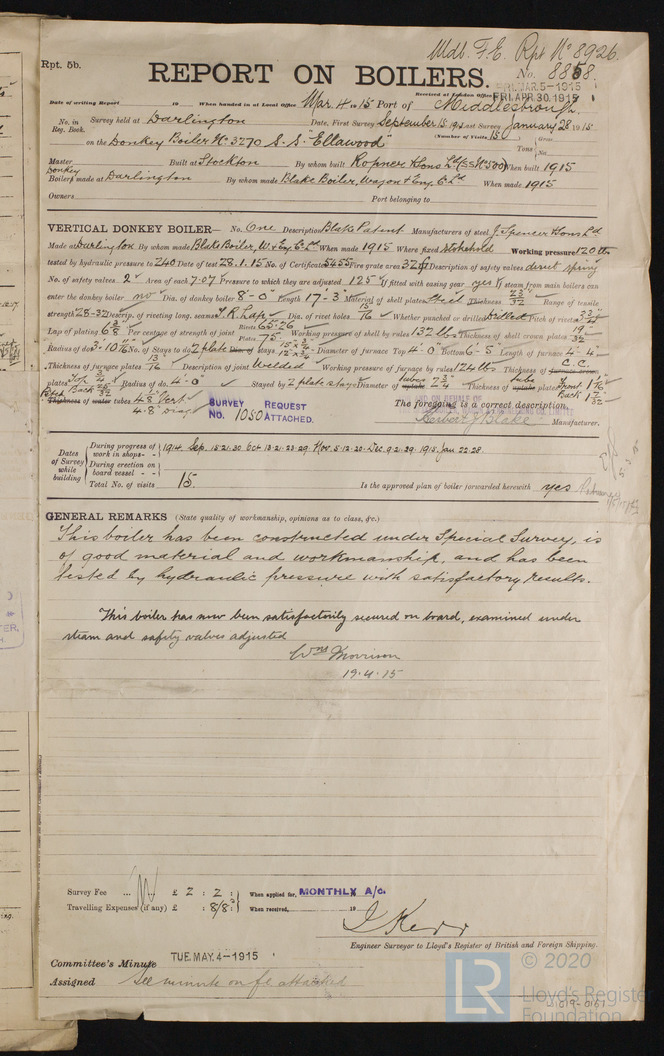 Mdb. F.E. Rpt No 8926.
Rpt. 5b.
REPORT ON BOILERS.
No. 8858.
FRI. MAR. 5-1915
FRI. APR. 30. 1915
Received at London Office
Date of writing Report 19 When handed in at Local Office Mar. 4 1915 Port of Middlesbrough
No. in Reg. Book. Survey held at Darlington Date, First Survey September 15 Last Survey January 28 1915
(Number of Visits 15)
on the Donkey Boiler No. 3270 S.S. "Ellawood" Tons Gross Net
Master Built at Stockton By whom built Ropner & Sons Ld (SS No 500) When built 1915
Donkey Boilers made at Darlington By whom made Blake Boiler, Wagon & Eng. Co. Ld. When made 1915
Owners Port belonging to
VERTICAL DONKEY BOILER— No. One Description Blake Patent Manufacturers of steel J. Spencer & Sons Ld
Made at Darlington By whom made Blake Boiler, W. & Eng. Co. Ld. When made 1915 Where fixed Stokehold Working pressure 120 lbs
tested by hydraulic pressure to 240 Date of test 28.1.15 No. of Certificate 5455 Fire grate area 32 Description of safety valves direct spring
No. of safety valves 2 Area of each 7.07 Pressure to which they are adjusted 125 If fitted with easing gear yes If steam from main boilers can
enter the donkey boiler no Dia. of donkey boiler 8'-0" Length 17'-3" Material of shell plates Steel Thickness 23/32 Range of tensile
strength 28-32 Descrip. of riveting long. seams T.R. Lap Dia. of rivet holes 15/16 Whether punched or drilled Drilled Pitch of rivets 3 3/4
Lap of plating 6 3/8 Per centage of strength of joint Rivets 65.26 Plates 75 Working pressure of shell by rules 132 lbs Thickness of shell crown plates 19/32
Radius of do. 3'-10 No. of Stays to do. Z plate Dia. of stays Diameter of furnace Top 4'-0" Bottom 6'-5" Length of furnace 4'-4"
Thickness of furnace plates 13/16 Description of joint Welded Working pressure of furnace by rules 124 lbs Thickness of furnace crown C.C.
plates Top 3/4 Back 25/32 Radius of do. 4'-0" Stayed by Z plate stays Diameter of uptake tubes 2 3/4 Thickness of uptake tube plates Front 1 Back 1
Pitch Thickness of water tubes 4.8 Vert 4.8 Diag
SURVEY REQUEST
NO. 1050 ATTACHED.
The foregoing is a correct description,
Herbert J Blake Manufacturer.
Dates of Survey while building
During progress of work in shops - - 1914. Sep. 15. 21. 30 Oct 13. 21. 23. 29. Nov. 5. 12. 20. Dec. 9. 21. 29. 1915. Jan 22. 28.
During erection on board vessel - -
Total No. of visits 15
Is the approved plan of boiler forwarded herewith yes
GENERAL REMARKS (State quality of workmanship, opinions as to class, &c.)
This boiler has been constructed under Special Survey, is
of good material and workmanship, and has been
tested by hydraulic pressure with satisfactory results.
This boiler has now been satisfactorily secured on board, examined under
steam and safety valves adjusted
Wm Morrison
19.4.15
Survey Fee ... £ 2 : 2 : When applied for, MONTHLY A/c.
Travelling Expenses (if any) £ : 8/8 : When received, 19
J Kerr
Engineer Surveyor to Lloyd's Register of British and Foreign Shipping.
Committee's Minute TUE. MAY. 4-1915
Assigned See minute on f.e. attached
LR
© 2020
Lloyd's Register
Foundation